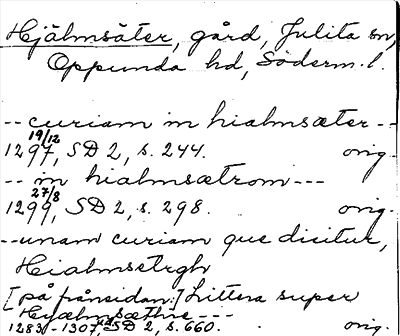 Hjälmsäter, gård, Julita sn,
Oppunda hd, Söderm. l.
-- curiam in hialmsæter --
19/12
1297, SD 2, s. 244. orig.
-- in hialmsætrom ---
27/8
1299, SD 2, s. 298. orig.
-- unam curiam que dicitur,
Hialmsetrgh
[på frånsidan:] Littera super
---
1283 - 1307 SD 2, s. 660. orig.